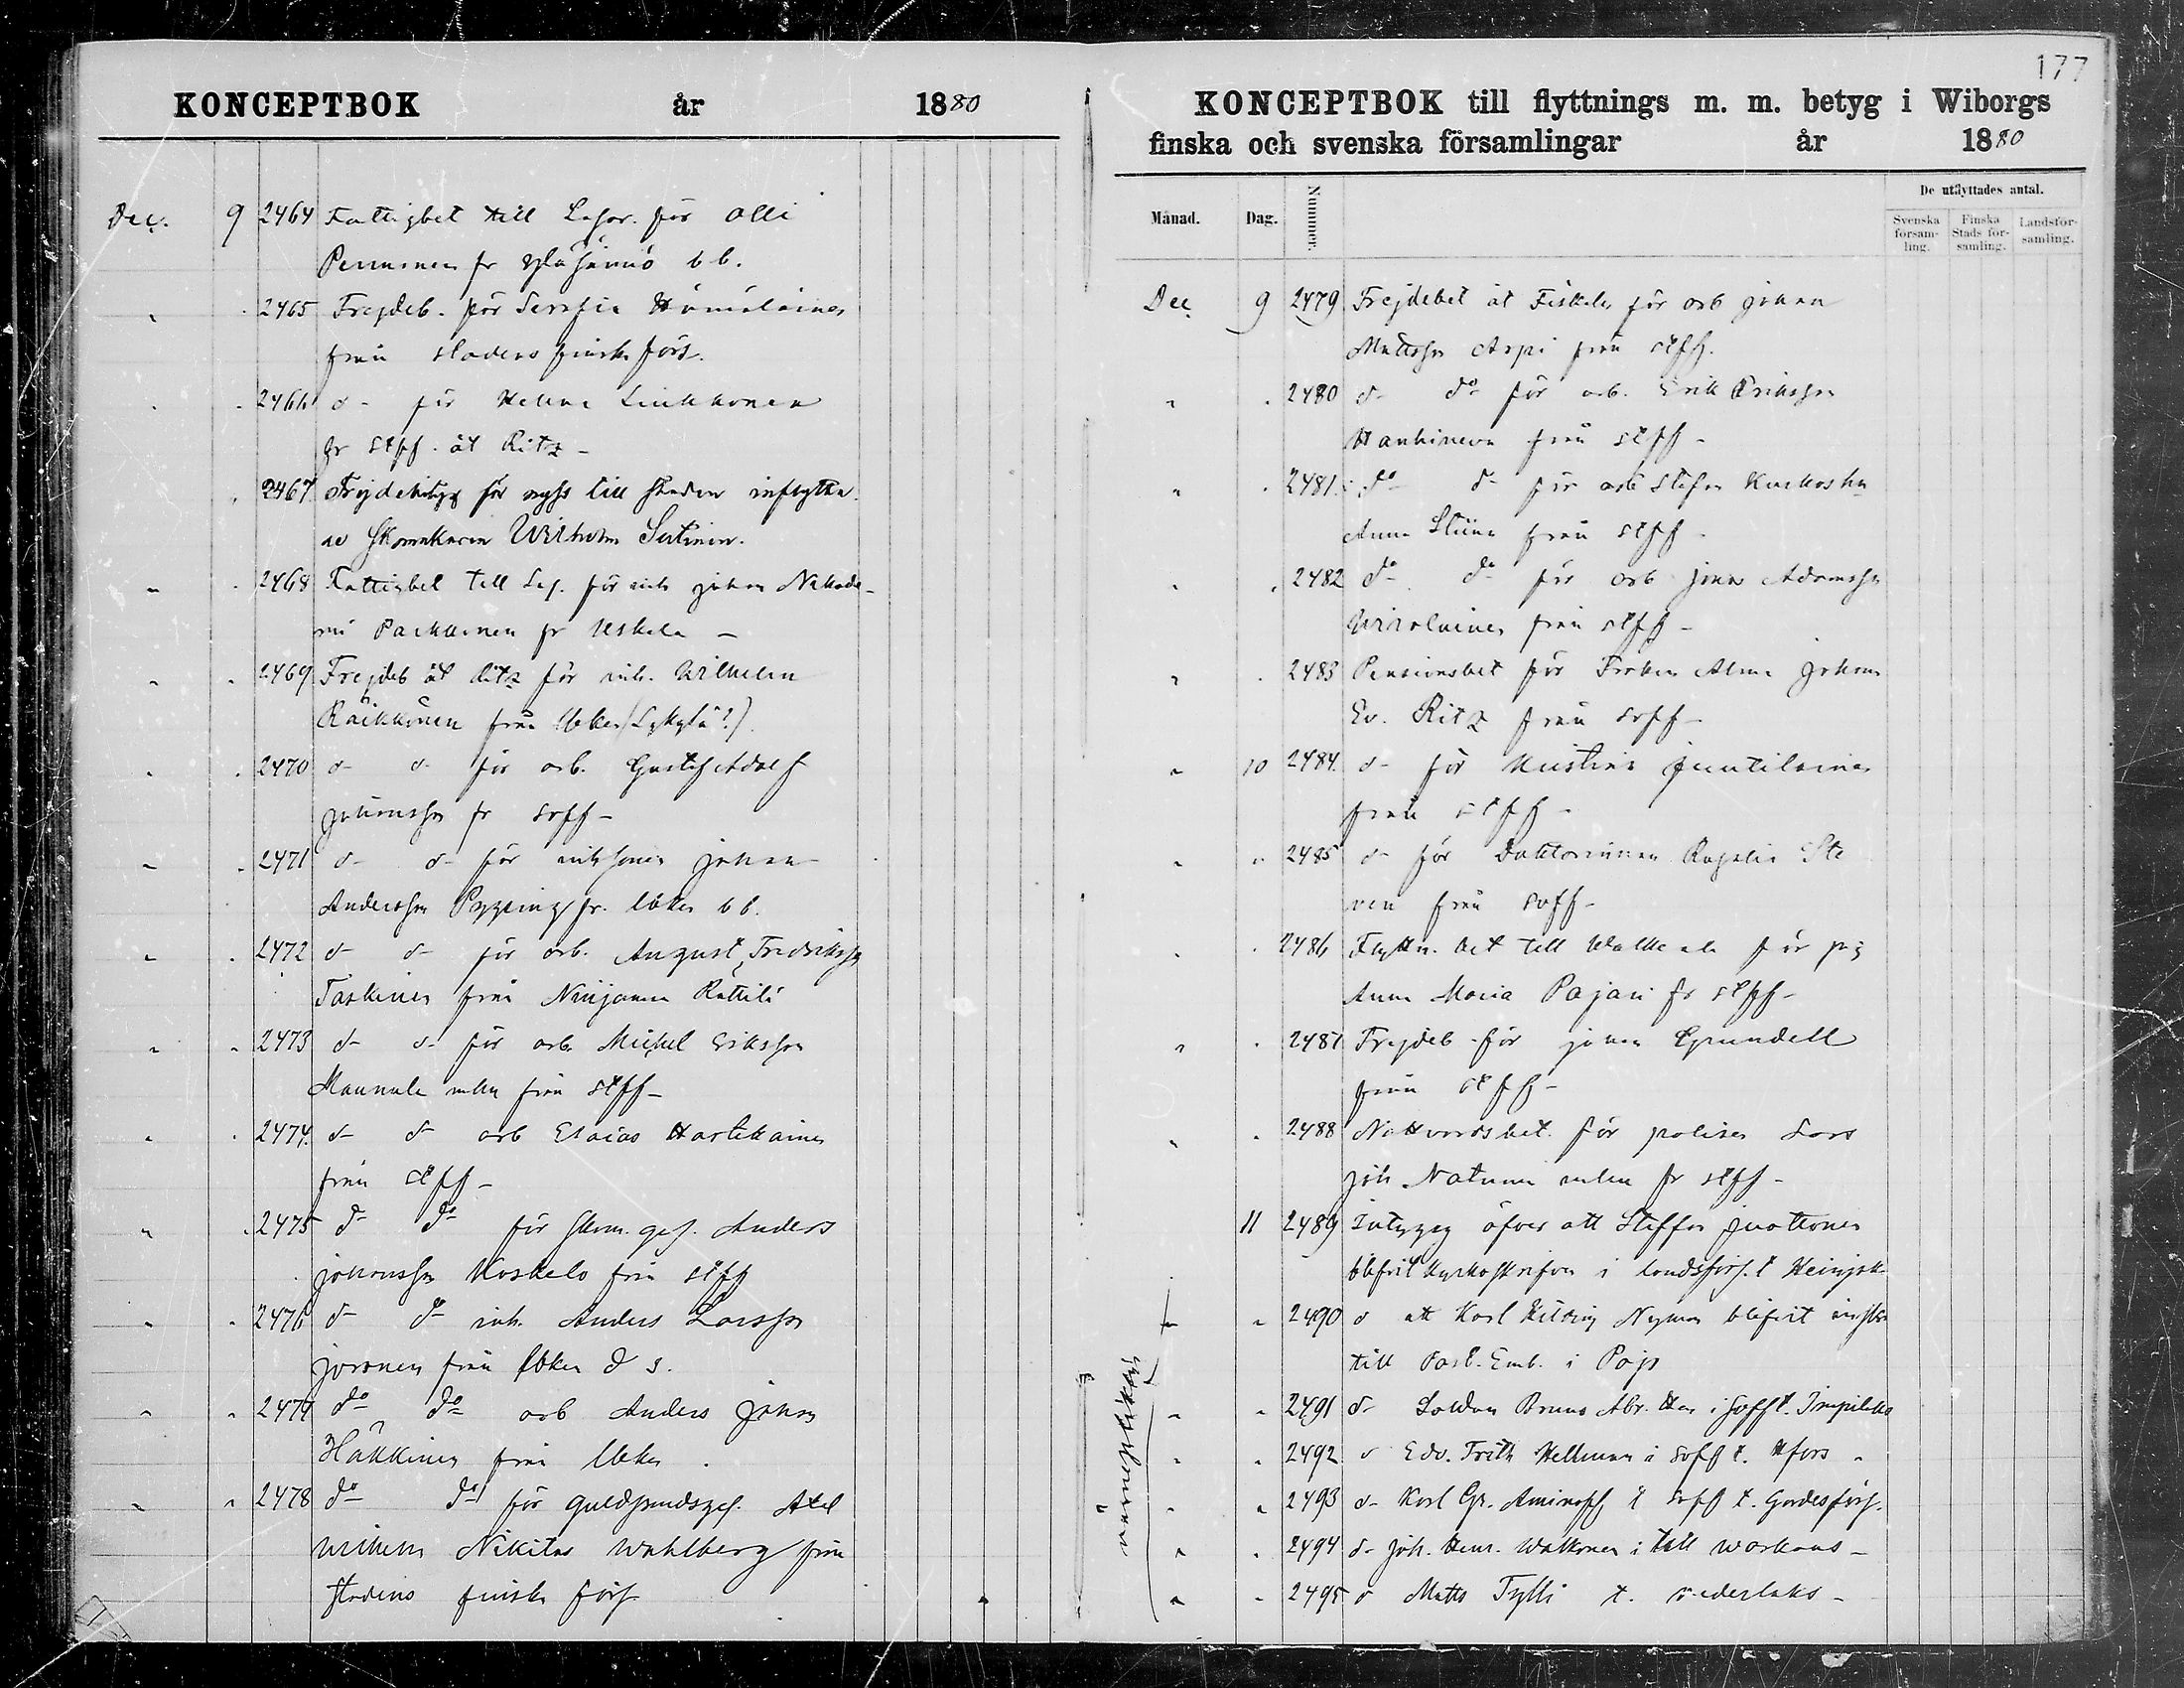 KONCEPTBOK år 1880
Dec. 9 2464 Fattigbet till Lasar. för Olli
Pennanen fr Yläjärvi bb.
" " 2465 Frejdeb. för Serafia Hämäläinen
från stadens finska förs.
" " 2466 d- för Helena Linkkonen
fr stff. åt Ritz -
" 2467 Frejdebetyg för nyss till staden inflytta-
de skomakaren Wilhelm Sutinen.
" " 2468 Fattigbet till Las. för inh Johan Nikode-
mi Parkkinen fr Uskela -
" " 2469 Frejdeb åt Ritz för inh. Wilhelm
Räikkönen från Ubker (Lykylä?)
" " 2470 d- d- för arb. Gustaf Adolf
Johansson fr soff -
" " 2471 d- d- för inhsonen Johan
Andersson Pypping fr. Ubker bb.
" " 2472 d- d- för arb. August Fredriksson
Taskinen från Ninjamaa Rättilä
" " 2473 d- d- för arb Michel Eriksson
Maunula från stff -
" " 2474 d- d- arb Esaias Hartikainen
från stff -
" " 2475 d- do för skom. ges. Anders
Johansson Koskelo från stff
" " 2476 d- do inh. Anders Larsson
Joronen från Ubker d s.
" " 2477 do do arb Anders Johan
Häkkinen från Ubker.
" " 2478 do do för guldsmedsges. Axel
Wilhelm Nikitas Wahlberg från
stadens finska förs
177
KONCEPTBOK till flyttnings m. m. betyg i Wiborgs
finska och svenska församlingar år 1880
Månad. Dag. Nummer. De utflyttades antal.
Svenska försam-ling. Finska Stads för-samling. Landsför-samling.
Dec 9 2479 Frejdebet åt Fiskeln för arb Johan
Mattsson Arpi från stff.
" " 2480 d- do för arb. Erik Eriksson
Hankinen från stff -
" " 2481 do d- för arb Stefan
Anna Stiina från stff -
" " 2482 do do för arb Johan Adamsson
Wirolainen från stff -
" " 2483 Pensionsbet för Fröken Alma Johan
Ev. Ritz från soff -
" 10 2484. d- för Kristina Juntilainen
från stff -
" " 2485 d- för Doktorinnan Rosalia Ste
ven från soff -
" " 2486 Flyttn. bet till Walkeala för pig
Anna Maria Pajari fr stff -
" " 2487 Frejdeb för Johan Grundell
från stff -
" " 2488 Nattvardsbet. för polisen Lars
Joh Natunen fr stff -
11 2489 Intyg öfver att Staffan Juottonen
blifvit kyrkoskrifven i landsförs. t Heinjoki
" 2490 d att Karl Hilding Nyman blifvit inskr
till i Pajs
" " 2491 d- Bruno Abr. i soff t. Impilaks
" " 2492 d Edv. Frith Hellman i soff t. Hfors "
" " 2493 d- Karl Gr. Aminoff t soff t. Gardesförs.
" " 2494 d- Joh. Henr. Walkonen i till Warkaus -
" " 2495 d Matts Tylli t. Wederlaks -